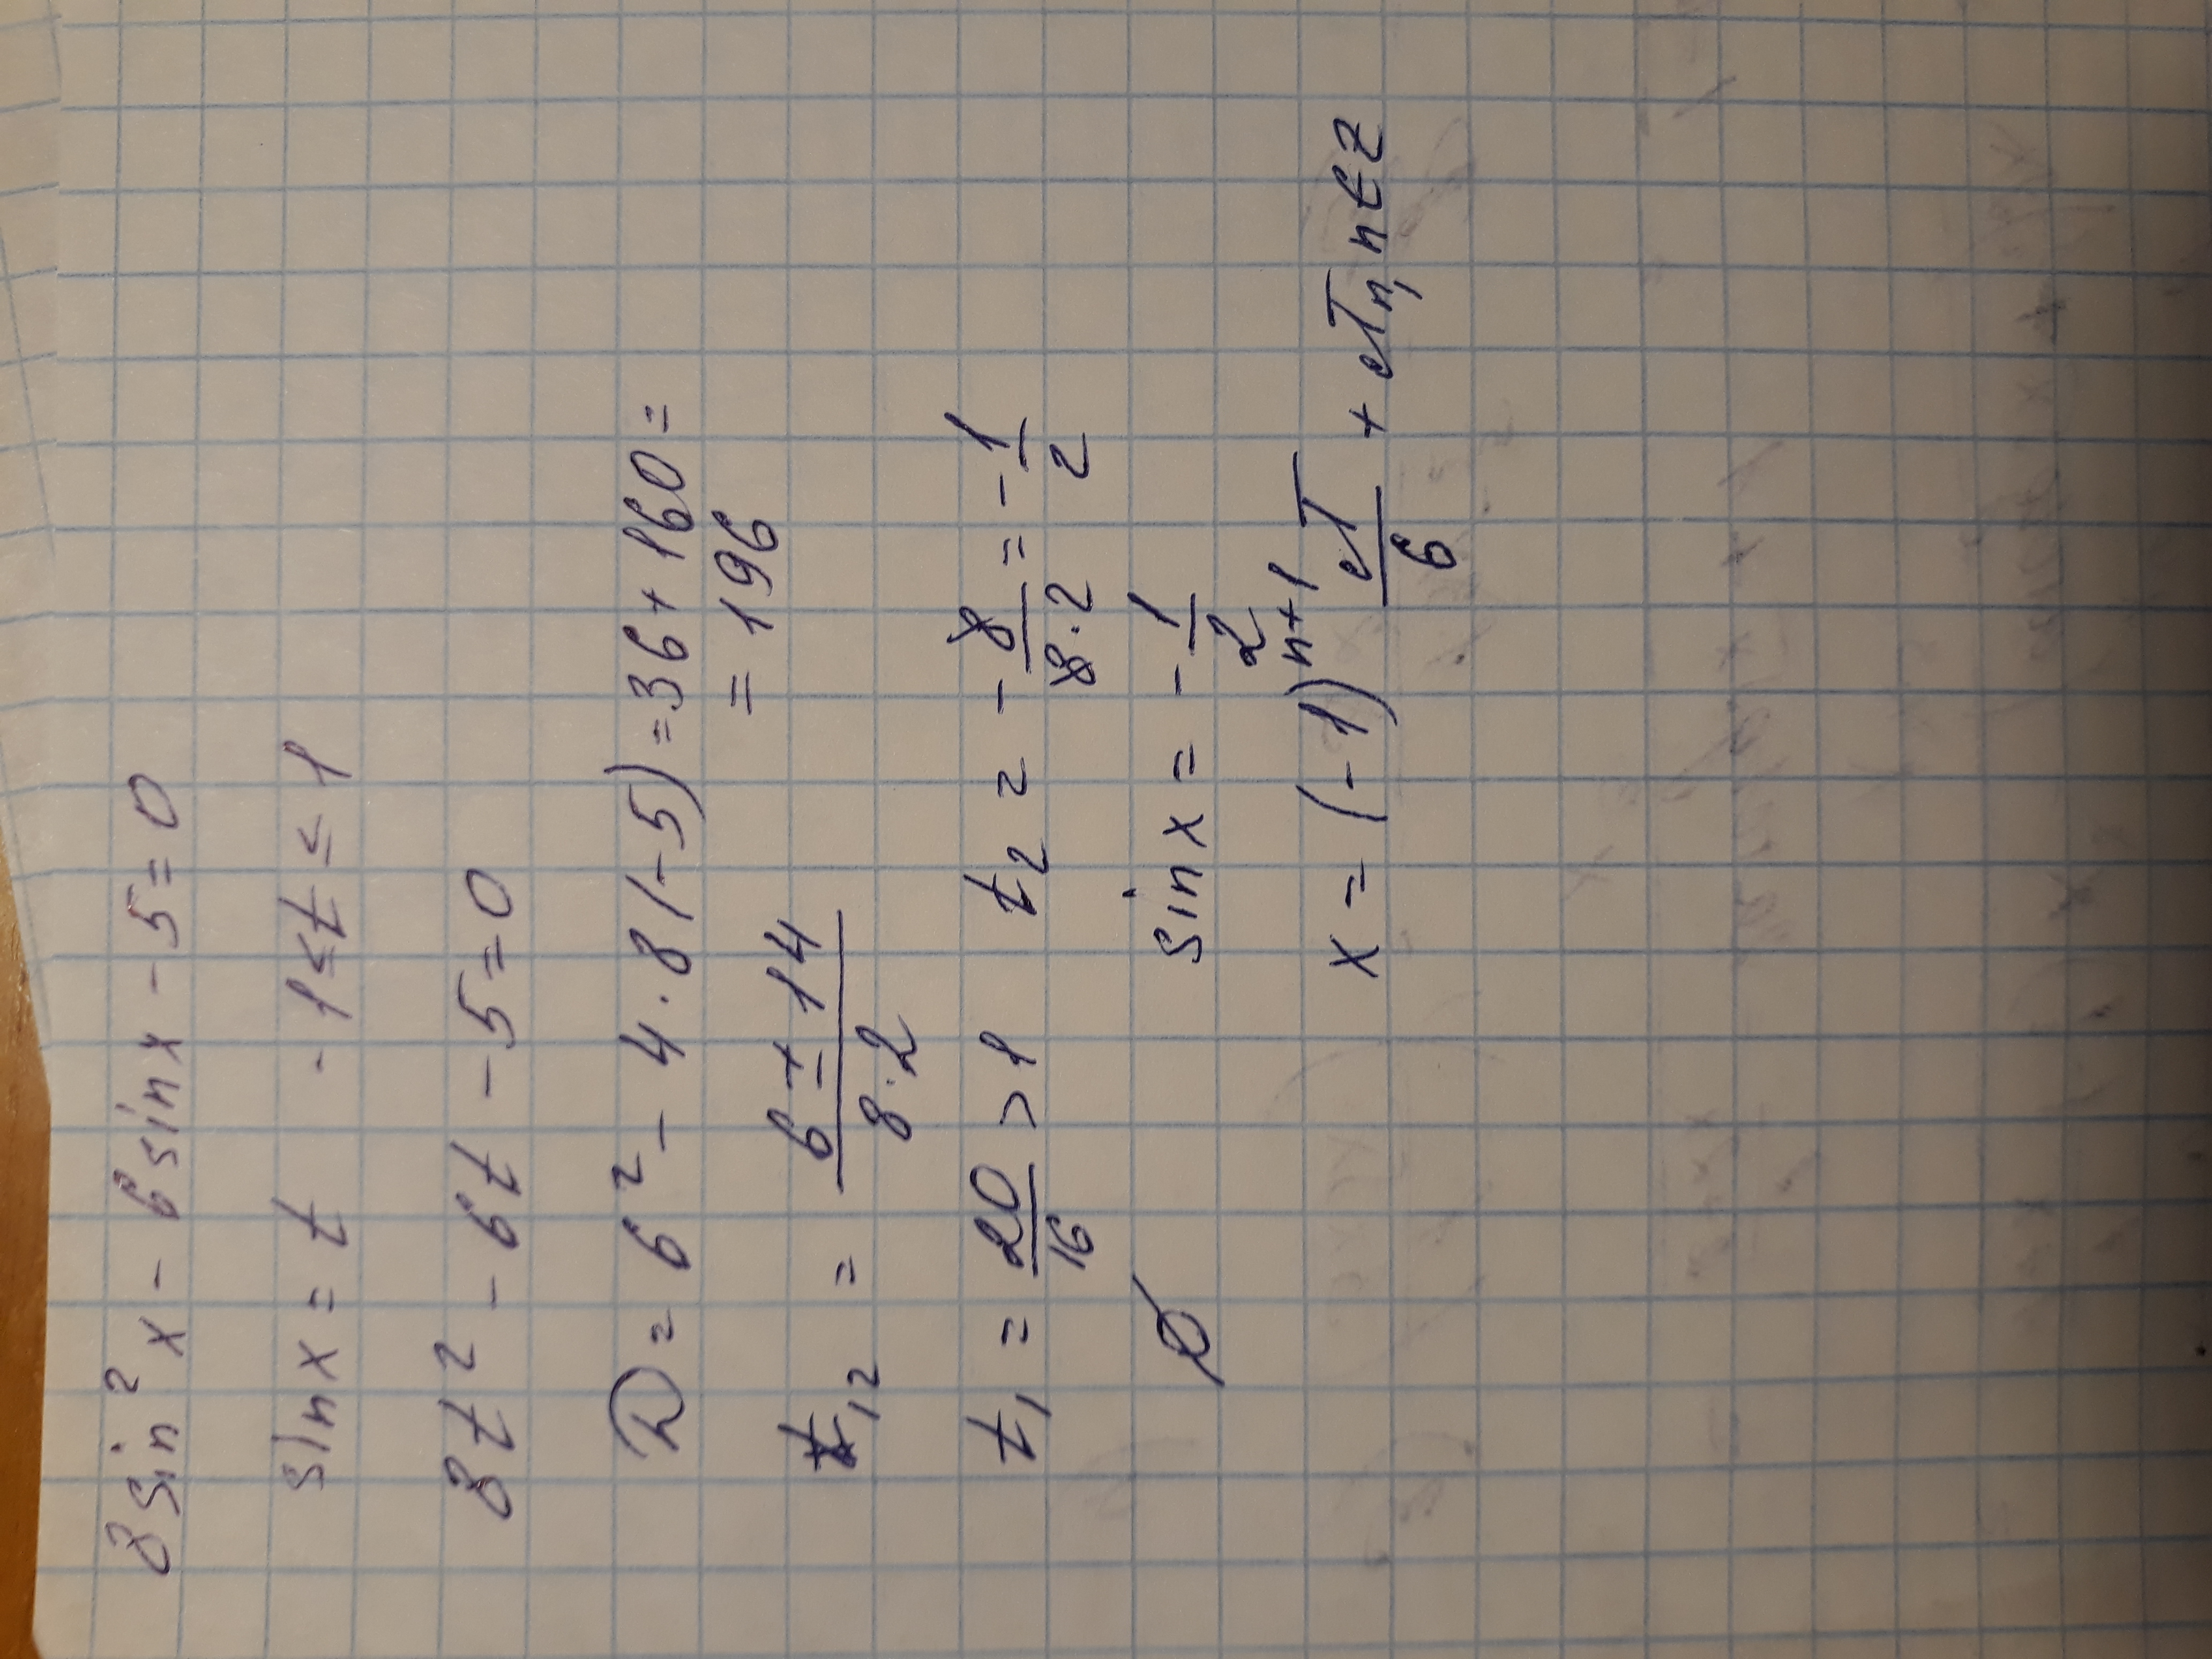 8 sin² x - 6 sin x - 5 = 0
sin x = t   -1 ≤ t ≤ 1
8t² - 6t - 5 = 0
D = 6² - 4 · 8 (-5) = 36 + 160 =
= 196
t₁,₂ = (6 ± 14)/(8 · 2)
t₁ = 20/16 > 1   t₂ = -8/(8 · 2) = -1/2
∅   sin x = -1/2
x = (-1)ⁿ⁺¹ π/6 + πn, n ∈ Z